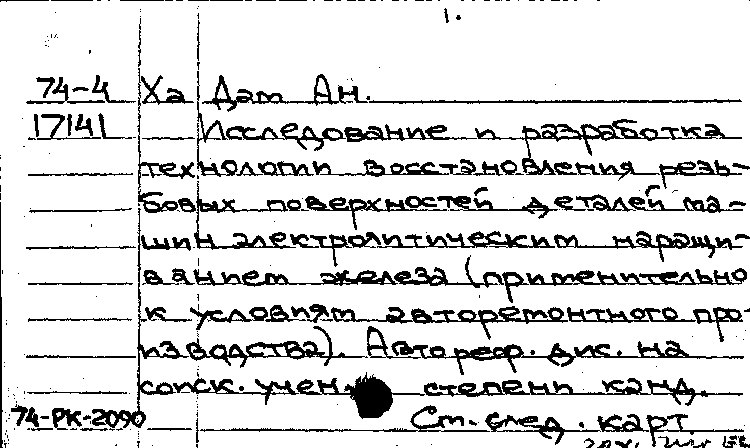 1.
74-4 Ха Дам Ан.
17141 Исследование и разработка
технологии восстановления резь-
бовых поверхностей деталей ма-
шин электролитическим наращи-
ванием железа (применительно
к условиям авторемонтного про-
изводства). Автореф. дис. на
соиск. учен. степени канд.
74-РК-2090 См. след. карт